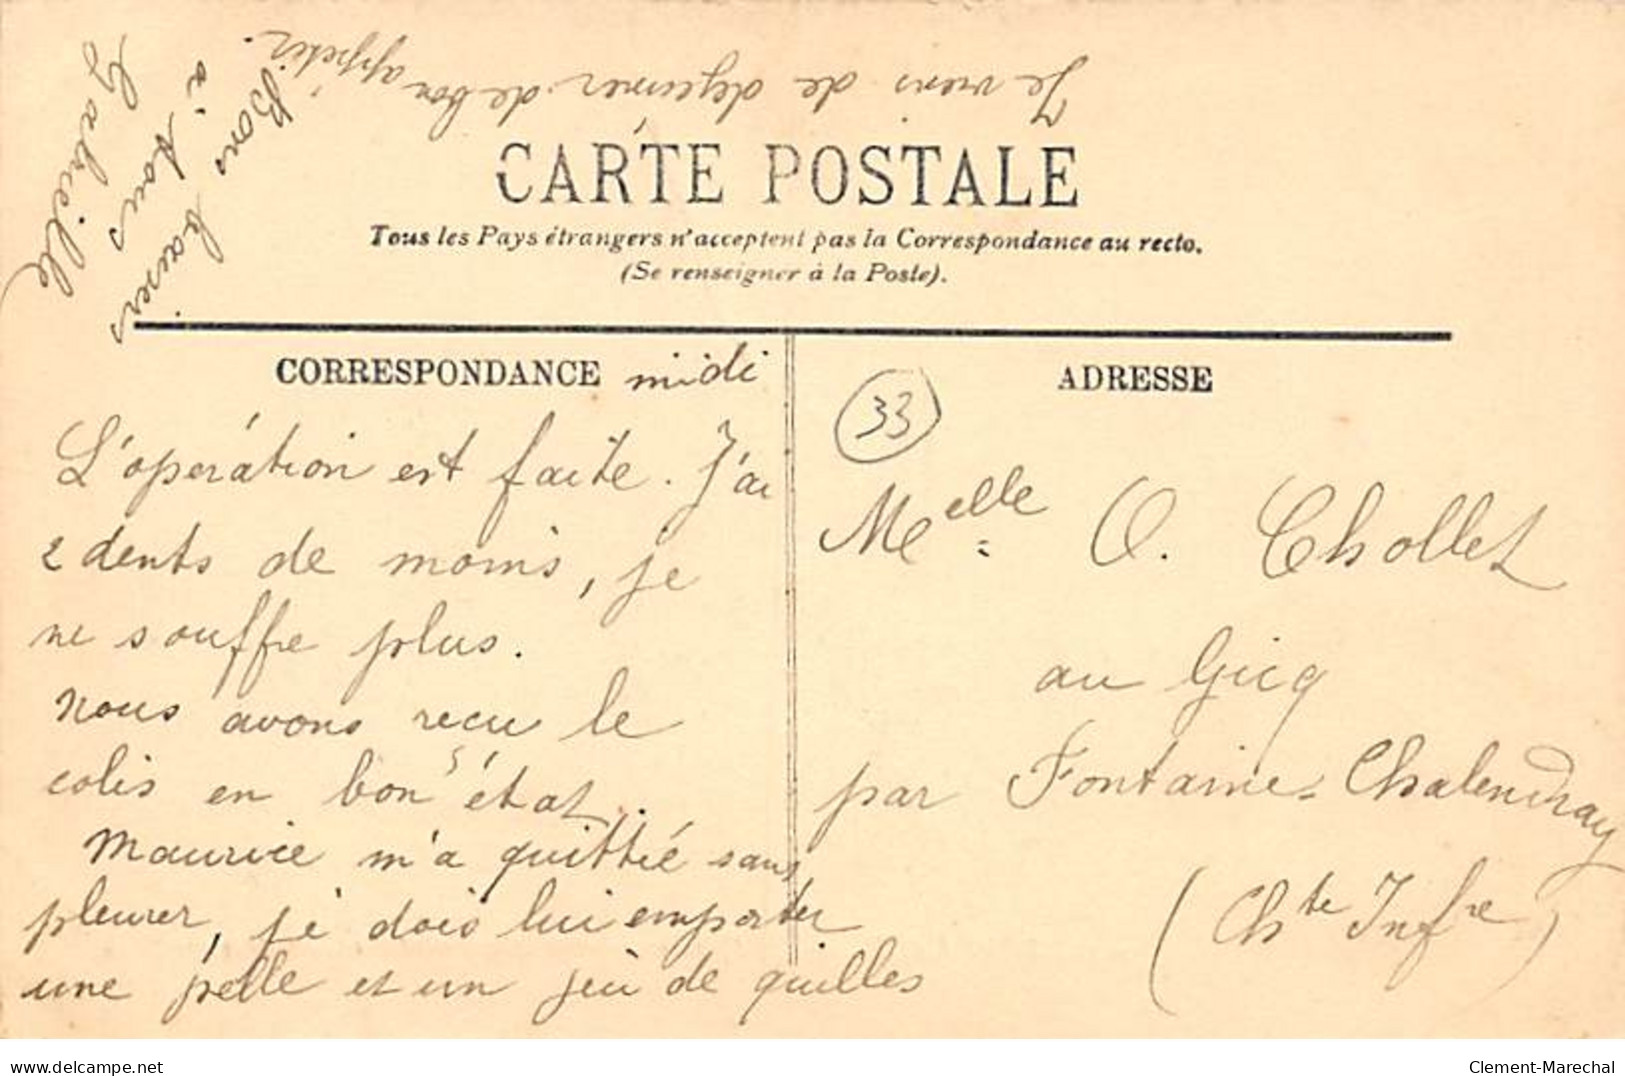 Je viens de dejeuner de bon appétit.
Bons baisers
à tous
Gabrielle
CARTE POSTALE
Tous les Pays étrangers n'acceptent pas la Correspondance au recto.
(Se renseigner à la Poste).
CORRESPONDANCE midi
L'opération est faite. J'ai
2 dents de moins, je
ne souffre plus.
nous avons reçu le
colis en bon état.
Maurice m'a quittée sans
pleurer, je dois lui emporter
une pelle et un jeu de quilles
ADRESSE
33
Melle O. Chollet
au Gicq
par Fontaine-Chalendray
(Chte Infre)
delcampe.net
Clement-Marechal